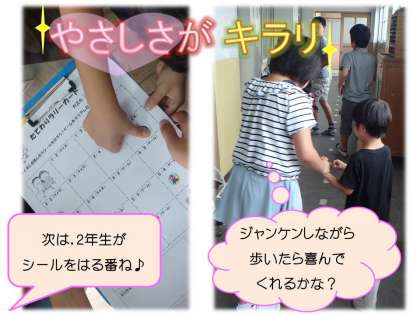 やさしさが キラリ
たてわりラリーカード
次は,2年生が
シールをはる番ね♪
ジャンケンしながら
歩いたら喜んで
くれるかな？